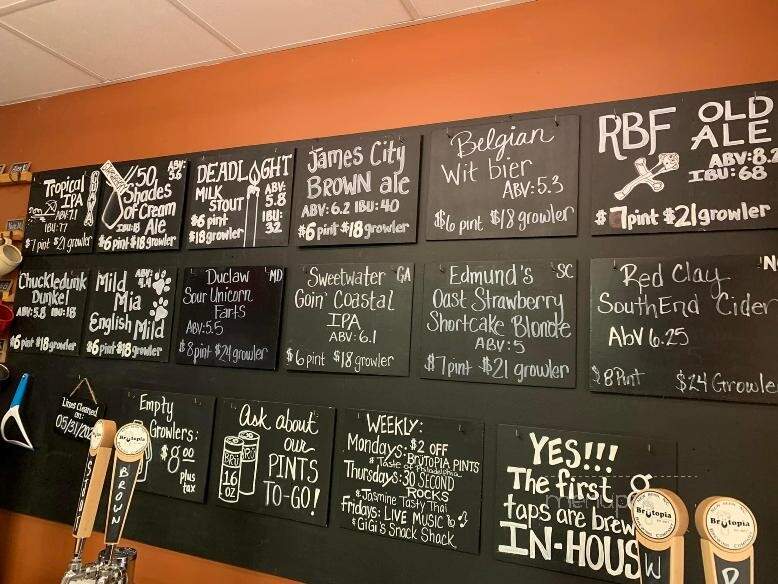 Tropical
IPA
ABV: 7.1
IBU: 77
$7 pint $21 growler
50
Shades
of Cream
Ale
ABV: 3.6
IBU: 18
$6 pint $18 growler
DEADLIGHT
MILK
STOUT
ABV: 5.8
IBU: 32
$6 pint
$18 growler
James City
BROWN ale
ABV: 6.2 IBU: 40
$6 pint $18 growler
Belgian
Wit bier
ABV: 5.3
$6 pint $18 growler
RBF OLD
ALE
ABV: 8.2
IBU: 68
$7 pint $21 growler
Chuckledunk
Dunkel
ABV: 5.8 IBU: 18
$6 pint $18 growler
Mild
Mia
English Mild
$6 pint $18 growler
Duclaw MD
Sour Unicorn
Farts
ABV: 5.5
$8 pint $24 growler
Sweetwater GA
Goin' Coastal
IPA
ABV: 6.1
$6 pint $18 growler
Edmund's SC
Oast Strawberry
Shortcake Blonde
ABV: 5
$7 pint $21 growler
Red Clay
SouthEnd Cider
Abv 6.25
$8 Pint $24 Growle
Lines Cleaned
on:
05/31/202
Empty
Growlers:
$8.00
plus
tax
Ask about
our
PINTS
TO-GO!
BRU
16
oz
WEEKLY:
Mondays: $2 OFF
BRUTOPIA PINTS
*Taste of Philadelphia
Thursdays: 30 SECOND
ROCKS
*Jasmine Tasty Thai
Fridays: LIVE MUSIC to
*GiGi's Snack Shack
YES!!!
The first 8
taps are brew
IN-HOUS
STOUT
Brutopia
BROWN
Brutopia
W
Brutopia
P